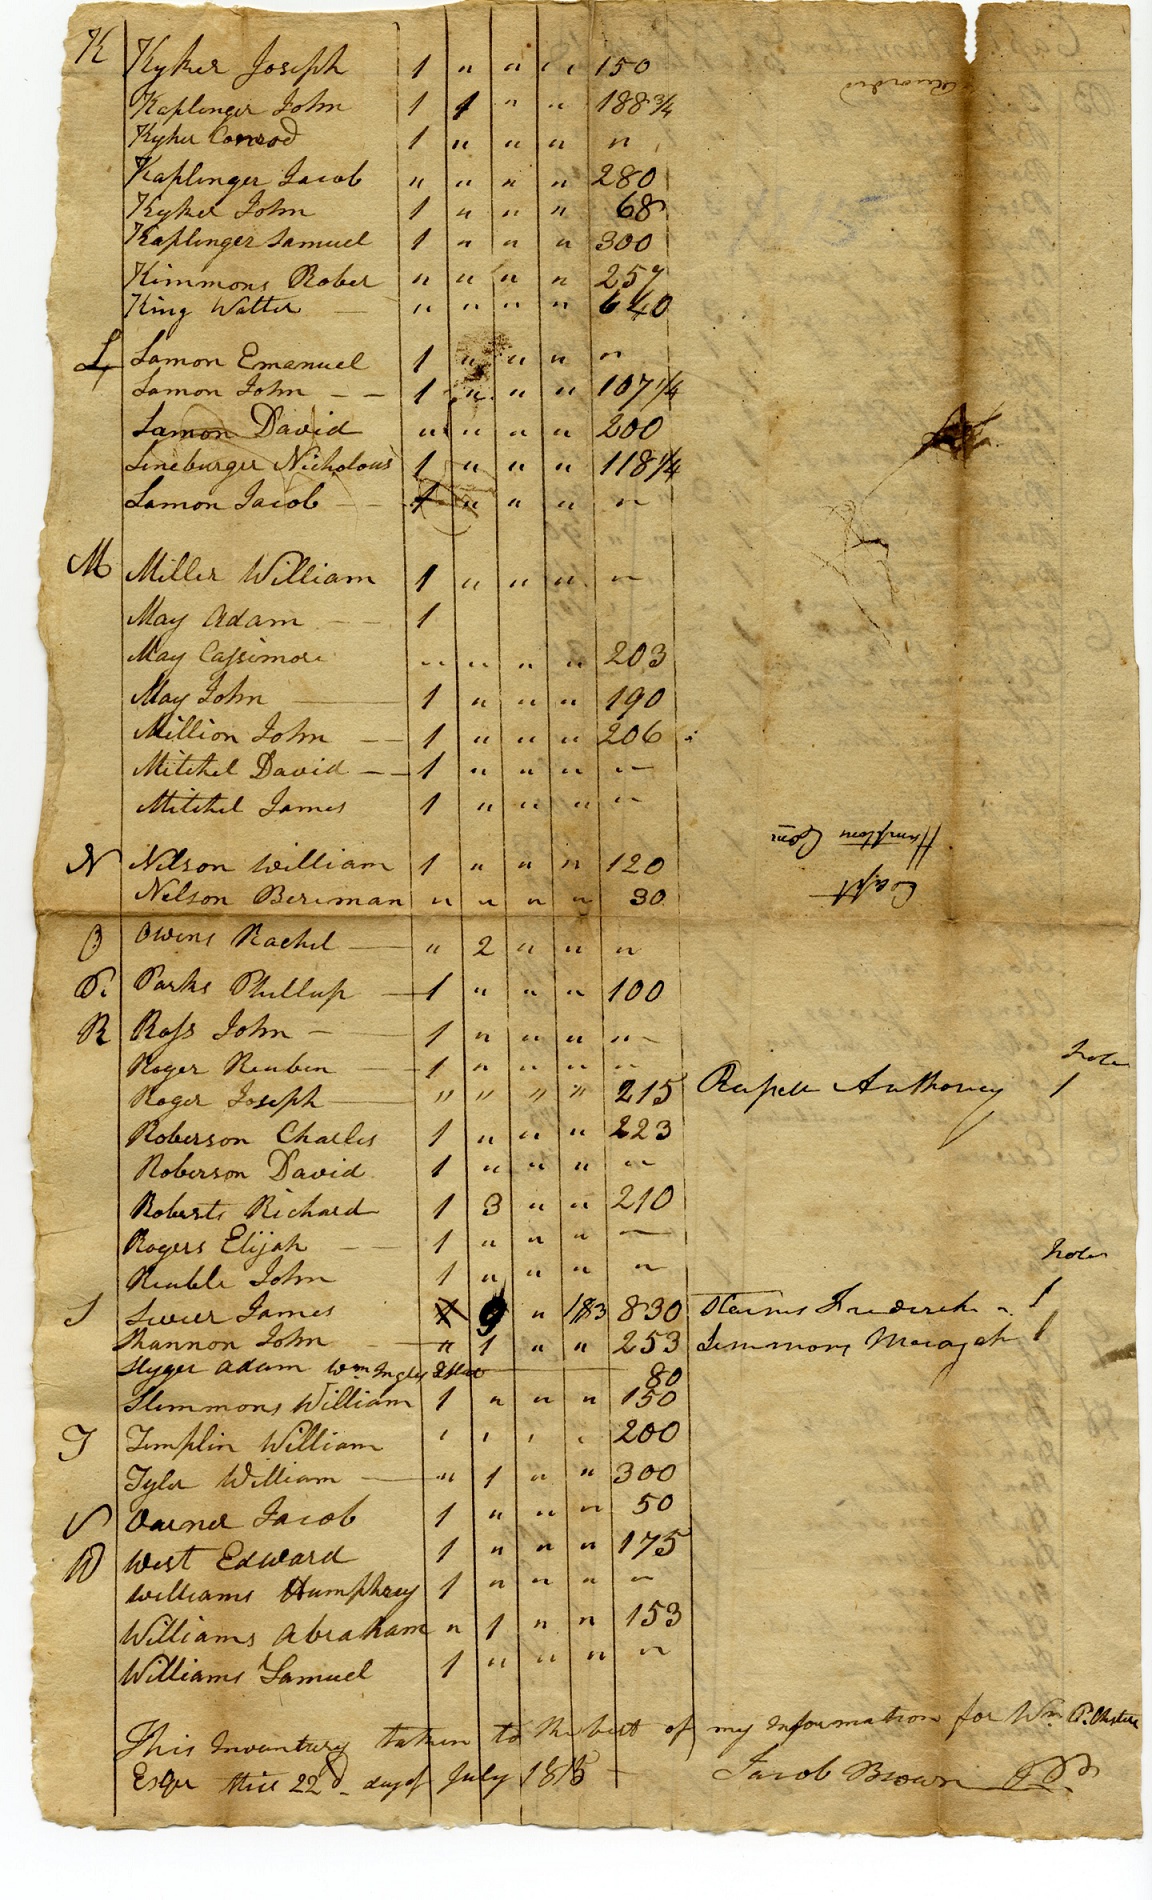 K Kyker Joseph 1 " " " " 150
Kaplinger John 1 1 " " 188 3/4
Kyker Conrod 1 " " " "
Kaplinger Jacob " " " " 280
Kyker John 1 " " " 68
Kaplinger Samuel 1 " " " 300
Kimmons Rober " " " " 257
King Walter " " " " 640
L Lamon Emanuel 1 " " " "
Lamon John 1 " " " 107 1/4
Lamon David " " " " 200
Lineburger Nicholous 1 " " " 118 1/4
Lamon Jacob 1 " " " "
M Miller William 1 " " " "
May Adam 1
May Cassimore " " " " 203
May John 1 " " " 190
Million John 1 " " " 206
Mitchel David 1 " " " "
Mitchel James 1 " " " "
Hampton Com
Capt
N Nelson William 1 " " " 120
Nelson Beriman " " " " 30
O Owens Rachel " 2 " " "
P Parks Phillup 1 " " " 100
R Ross John 1 " " " "
Roger Reuben 1 " " " "
hole
Roger Joseph " " " " 215 Russell Anthoney 1
Roberson Charles 1 " " " 223
Roberson David 1 " " " "
Roberts Richard 1 3 " " 210
Rogers Elijah 1 " " " "
hole
Reuble John 1 " " " "
S Sevier James 9 " 183 830 Stearns Frederick " 1
Shannon John " 1 " " 253 Simmons 1
Slyger Adam Wm 80
Slemmons William 1 " " " 150
T Templin William " " " " 200
Tyler William " 1 " " 300
V Varner Jacob 1 " " " 50
W West Edward 1 " " " 175
Williams Humphrey 1 " " " "
Williams Abraham " 1 " " 153
Williams Samuel 1 " " " "
This Inventury taken to the best of my Information for Wm P. Chester
Esqr this 22d day of July 1815
Jacob Brown JP